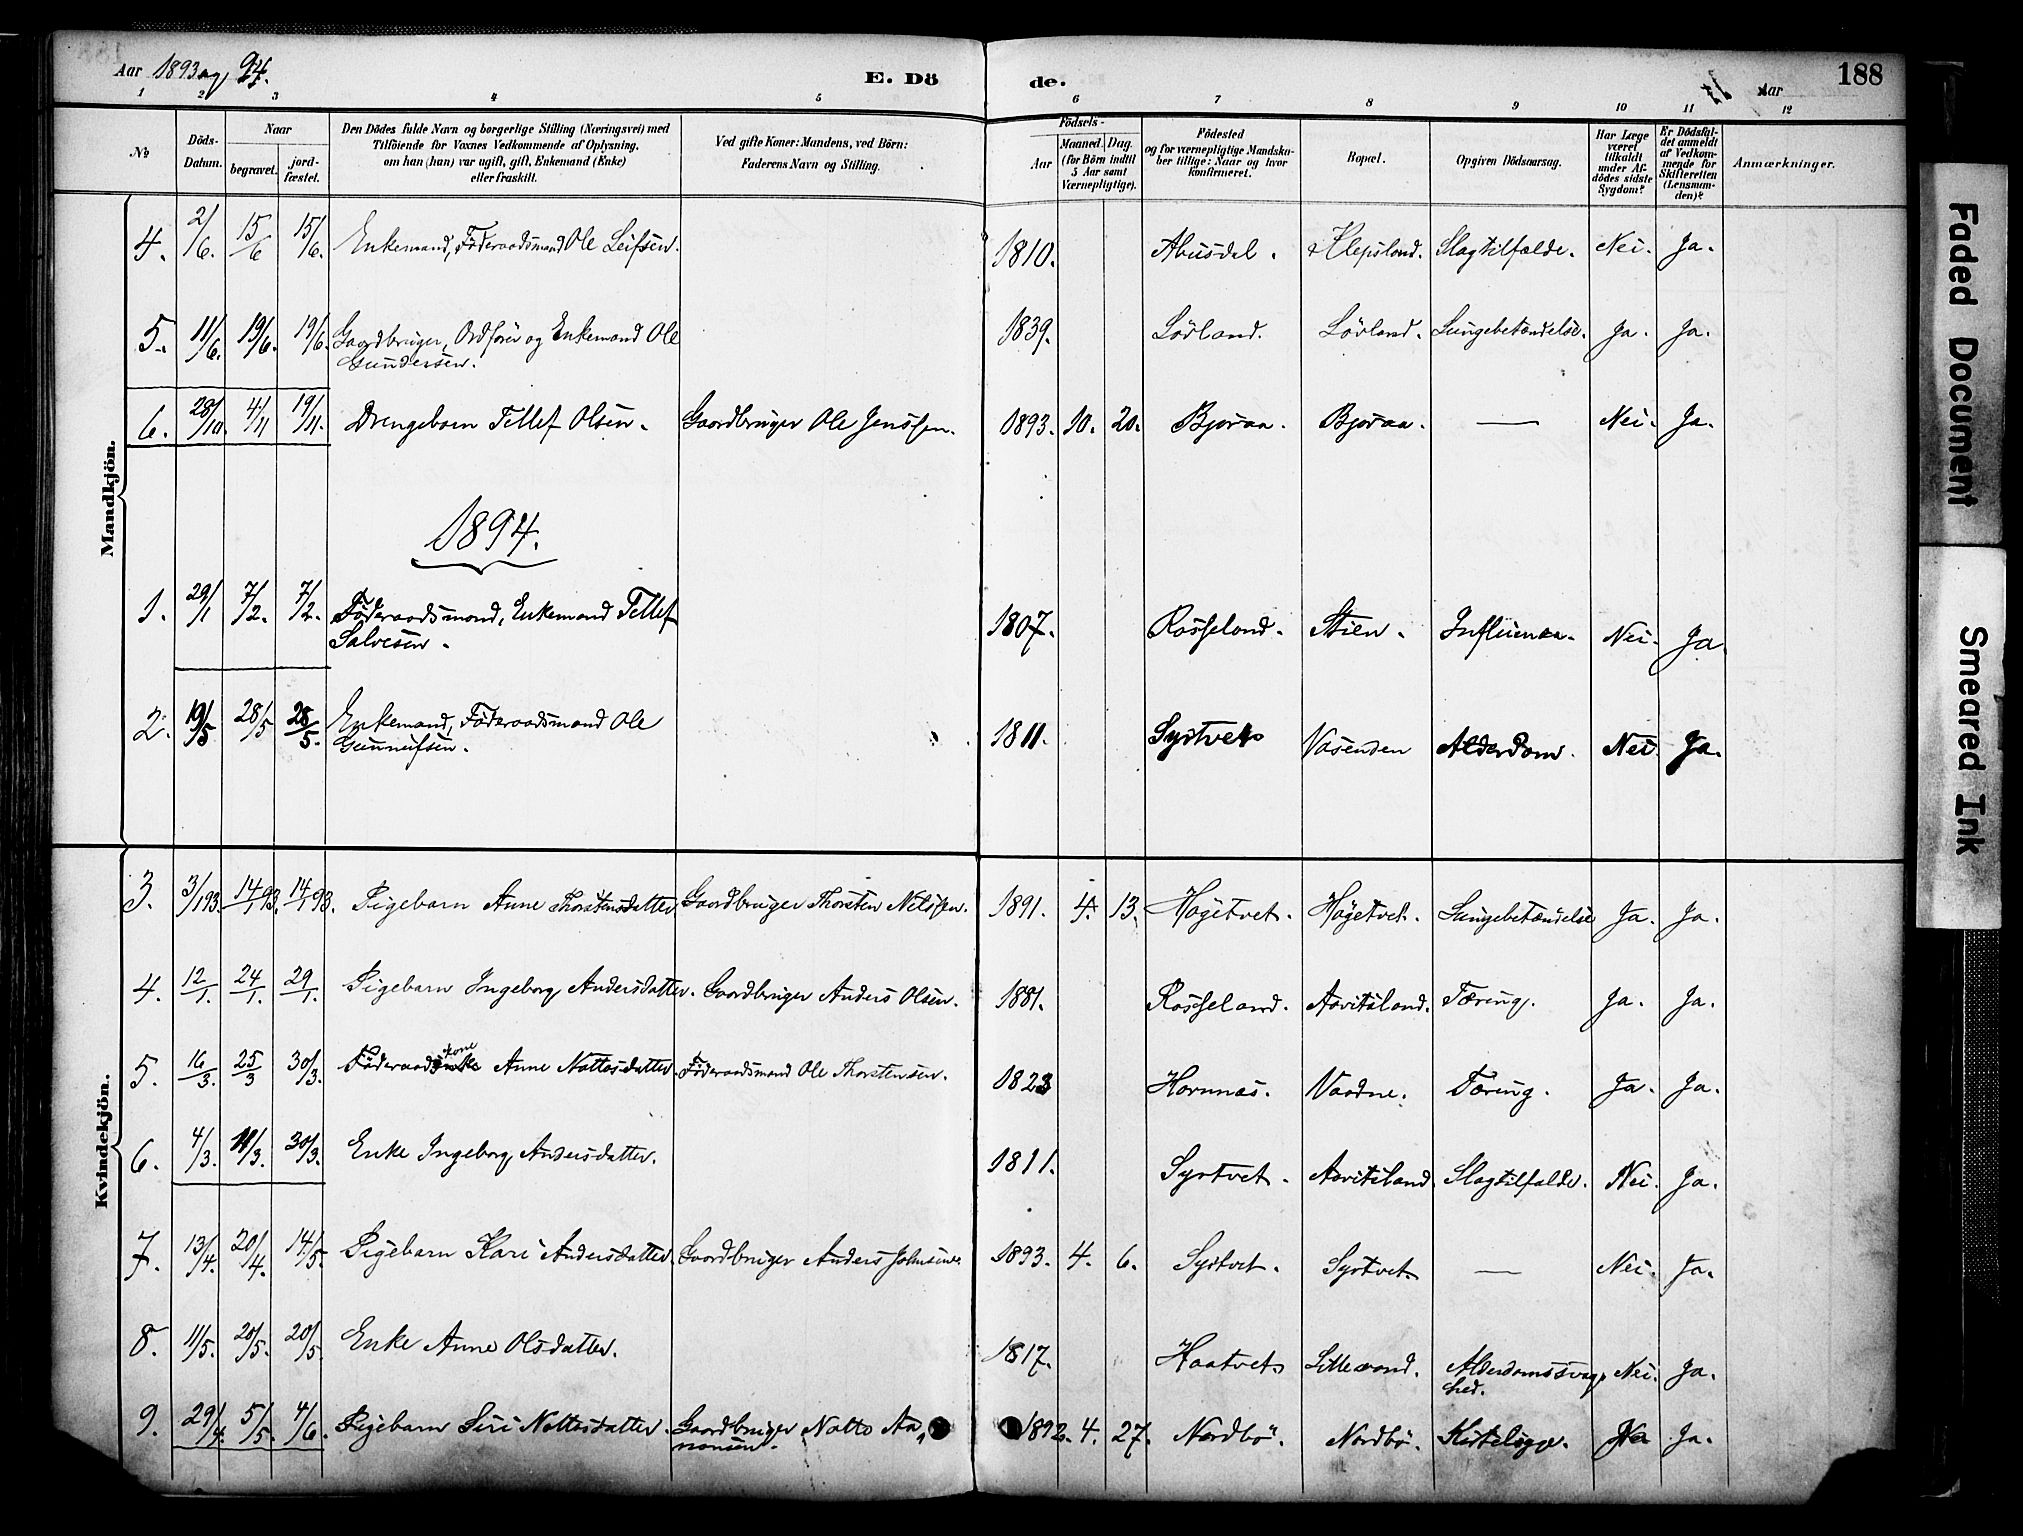 Aar 1893 og 94.
E. Dö
de.
Aar
188
1 2 3 4 5 6 7 8 9 10 11 12
No
Döds-Datum.
Naar
begravet.
jord-fæstet.
Den Dödes fulde Navn og borgerlige Stilling (Næringsvei) med
Tilföiende for Voxnes Vedkommende af Oplysning,
om han (hun) var ugift, gift, Enkemand (Enke)
eller fraskilt.
Ved gifte Koner: Mandens, ved Börn:
Faderens Navn og Stilling.
Födsels-
Aar
Maaned. Dag.
(for Börn indtil
5 Aar samt
Værnepligtige).
Födested
og for værnepligtige Mandska-
ber tillige: Naar og hvor
konfirmeret.
Bopæl.
Opgiven Dödsaarsag.
Har Læge
været
tilkaldt
under Af-
dödes sidste
Sygdom?
Er Dödsfal-
det anmeldt
af Vedkom-
mende for
Skifteretten
(Lensman-
den)?
Anmærkninger.
Mandkjön.
4. 2/6. 15/6 15/6. Enkemand, Föderaadsmand Ole Leifsen. 1810. Abusdal. Klepsland. Slagtilfælde. Nei. Ja.
5. 11/6. 19/6. 19/6. Gaardbruger, Ordförer og Enkemand Ole
Gundersen. 1839. Lövland. Lövland. Lungebetændelse. Ja. Ja.
6. 28/10. 4/11 19/11. Drengebarn Tellef Olsen. Gaardbruger Ole Jenssen. 1893. 10. 20. Bjoraa. Bjoraa. — Nei. Ja.
1894.
1. 29/1 7/2. 7/2. Föderaadsmand, Enkemand Tellef
Salvesen. 1807. Rosseland. Stien. Influenza. Nei. Ja.
2. 19/5 28/5 28/5. Enkemand, Föderaadsmand Ole
Gunneufsen. 1811. Systvet. Vasenden Alderdom. Nei. Ja.
Kvindekjön.
3. 3/1 93. 14/1 93. 14/1 93. Pigebarn Anne Thorstensdatter. Gaardbruger Thorsten Nilssen. 1891. 4. 13. Högetvet. Högetvet. Lungebetændelse Ja. Ja.
4. 12/1. 24/1. 29/1. Pigebarn Ingeborg Andersdatter. Gaardbruger Anders Olsen. 1881. Rosseland. Aavitsland. Tæring. Ja. Ja.
5. 16/3. 25/3 30/3. Föderaadskone Anne Nottosdatter. Föderaadsmand Ole Thorstensen. 1823 Hornnæs. Vaadne. Tæring. Ja. Ja.
6. 4/3. 11/3. 30/3. Enke Ingeborg Andersdatter. 1811. Systvet. Aavitsland Slagtilfælde. Nei. Ja.
7. 13/4. 20/4. 14/5. Pigebarn Kari Andersdatter. Gaardbruger Anders Johnsen. 1893. 4. 6. Systvet. Systvet. — Nei. Ja.
8. 11/5. 20/5. 20/5. Enke Anne Olsdatter. 1817. Haatvet. Lillesand. Alderdomssvag-
hed. Nei. Ja.
9. 29/4. 5/5. 4/6. Pigebarn Siri Nottosdatter. Gaardbruger Notto Aa-
nonsen. 1892. 4. 27. Nordbö. Nordbö. Ja.
Faded Document
Smeared Ink